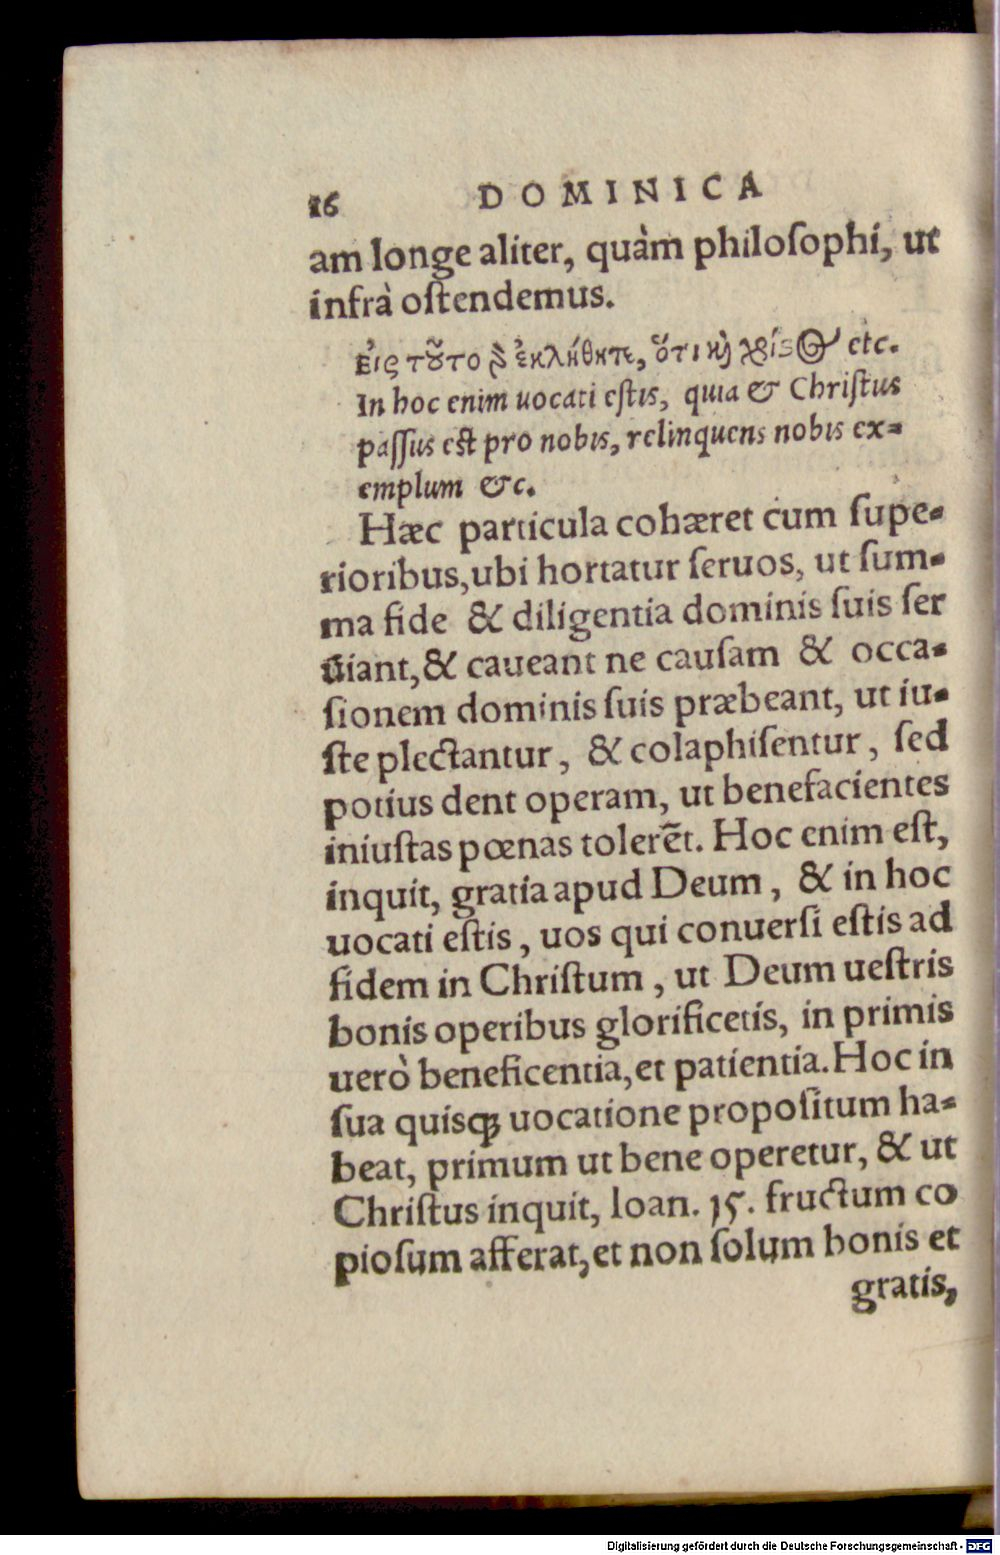 16 DOMINICA
am longe aliter, quàm philoſophi, ut
infrà oſtendemus.
εἰς τοῦτο γὰρ ἐκλήθητε, ὅτι καὶ χριστὸς etc.
In hoc enim uocati eſtis, quia & Chriſtus
paſſus eſt pro nobis, relinquens nobis ex-
emplum &c.
Hæc particula cohæret cum ſupe-
rioribus, ubi hortatur ſeruos, ut ſum-
ma fide & diligentia dominis ſuis ſer
uiant, & caueant ne cauſam & occa-
ſionem dominis ſuis præbeant, ut iu-
ſte plectantur, & colaphiſentur, ſed
potius dent operam, ut benefacientes
iniuſtas pœnas tolerēt. Hoc enim eſt,
inquit, gratia apud Deum, & in hoc
uocati eſtis, uos qui conuerſi eſtis ad
fidem in Chriſtum, ut Deum ueſtris
bonis operibus glorificetis, in primis
uerò beneficentia, et patientia. Hoc in
ſua quisqꝫ uocatione propoſitum ha-
beat, primum ut bene operetur, & ut
Chriſtus inquit, Ioan. 15. fructum co
pioſum afferat, et non ſolum bonis et
gratis,
Digitalisierung gefördert durch die Deutsche Forschungsgemeinschaft - DFG